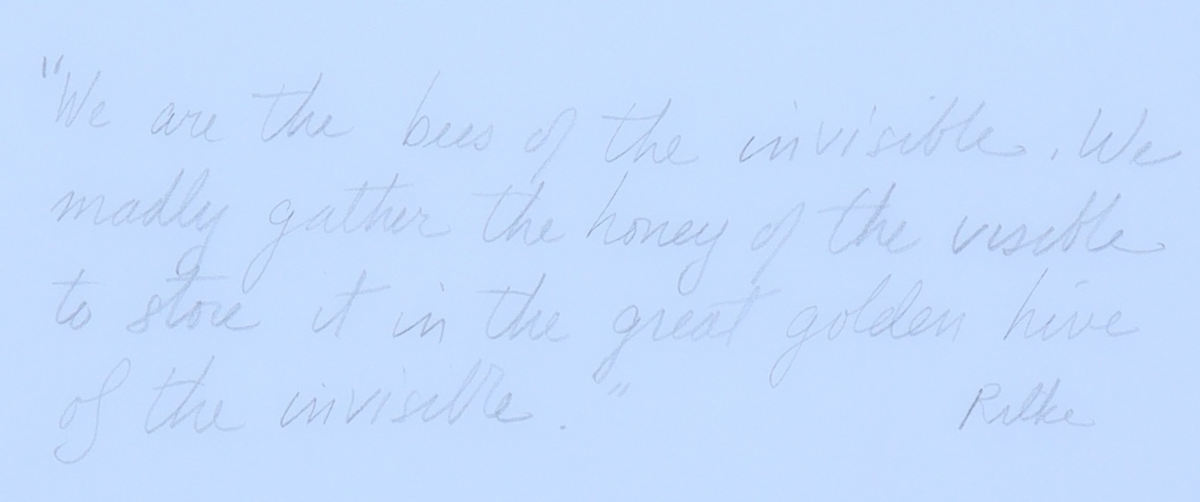 "We are the bees of the invisible. We
madly gather the honey of the visible
to store it in the great golden hive
of the invisible."
Rilke